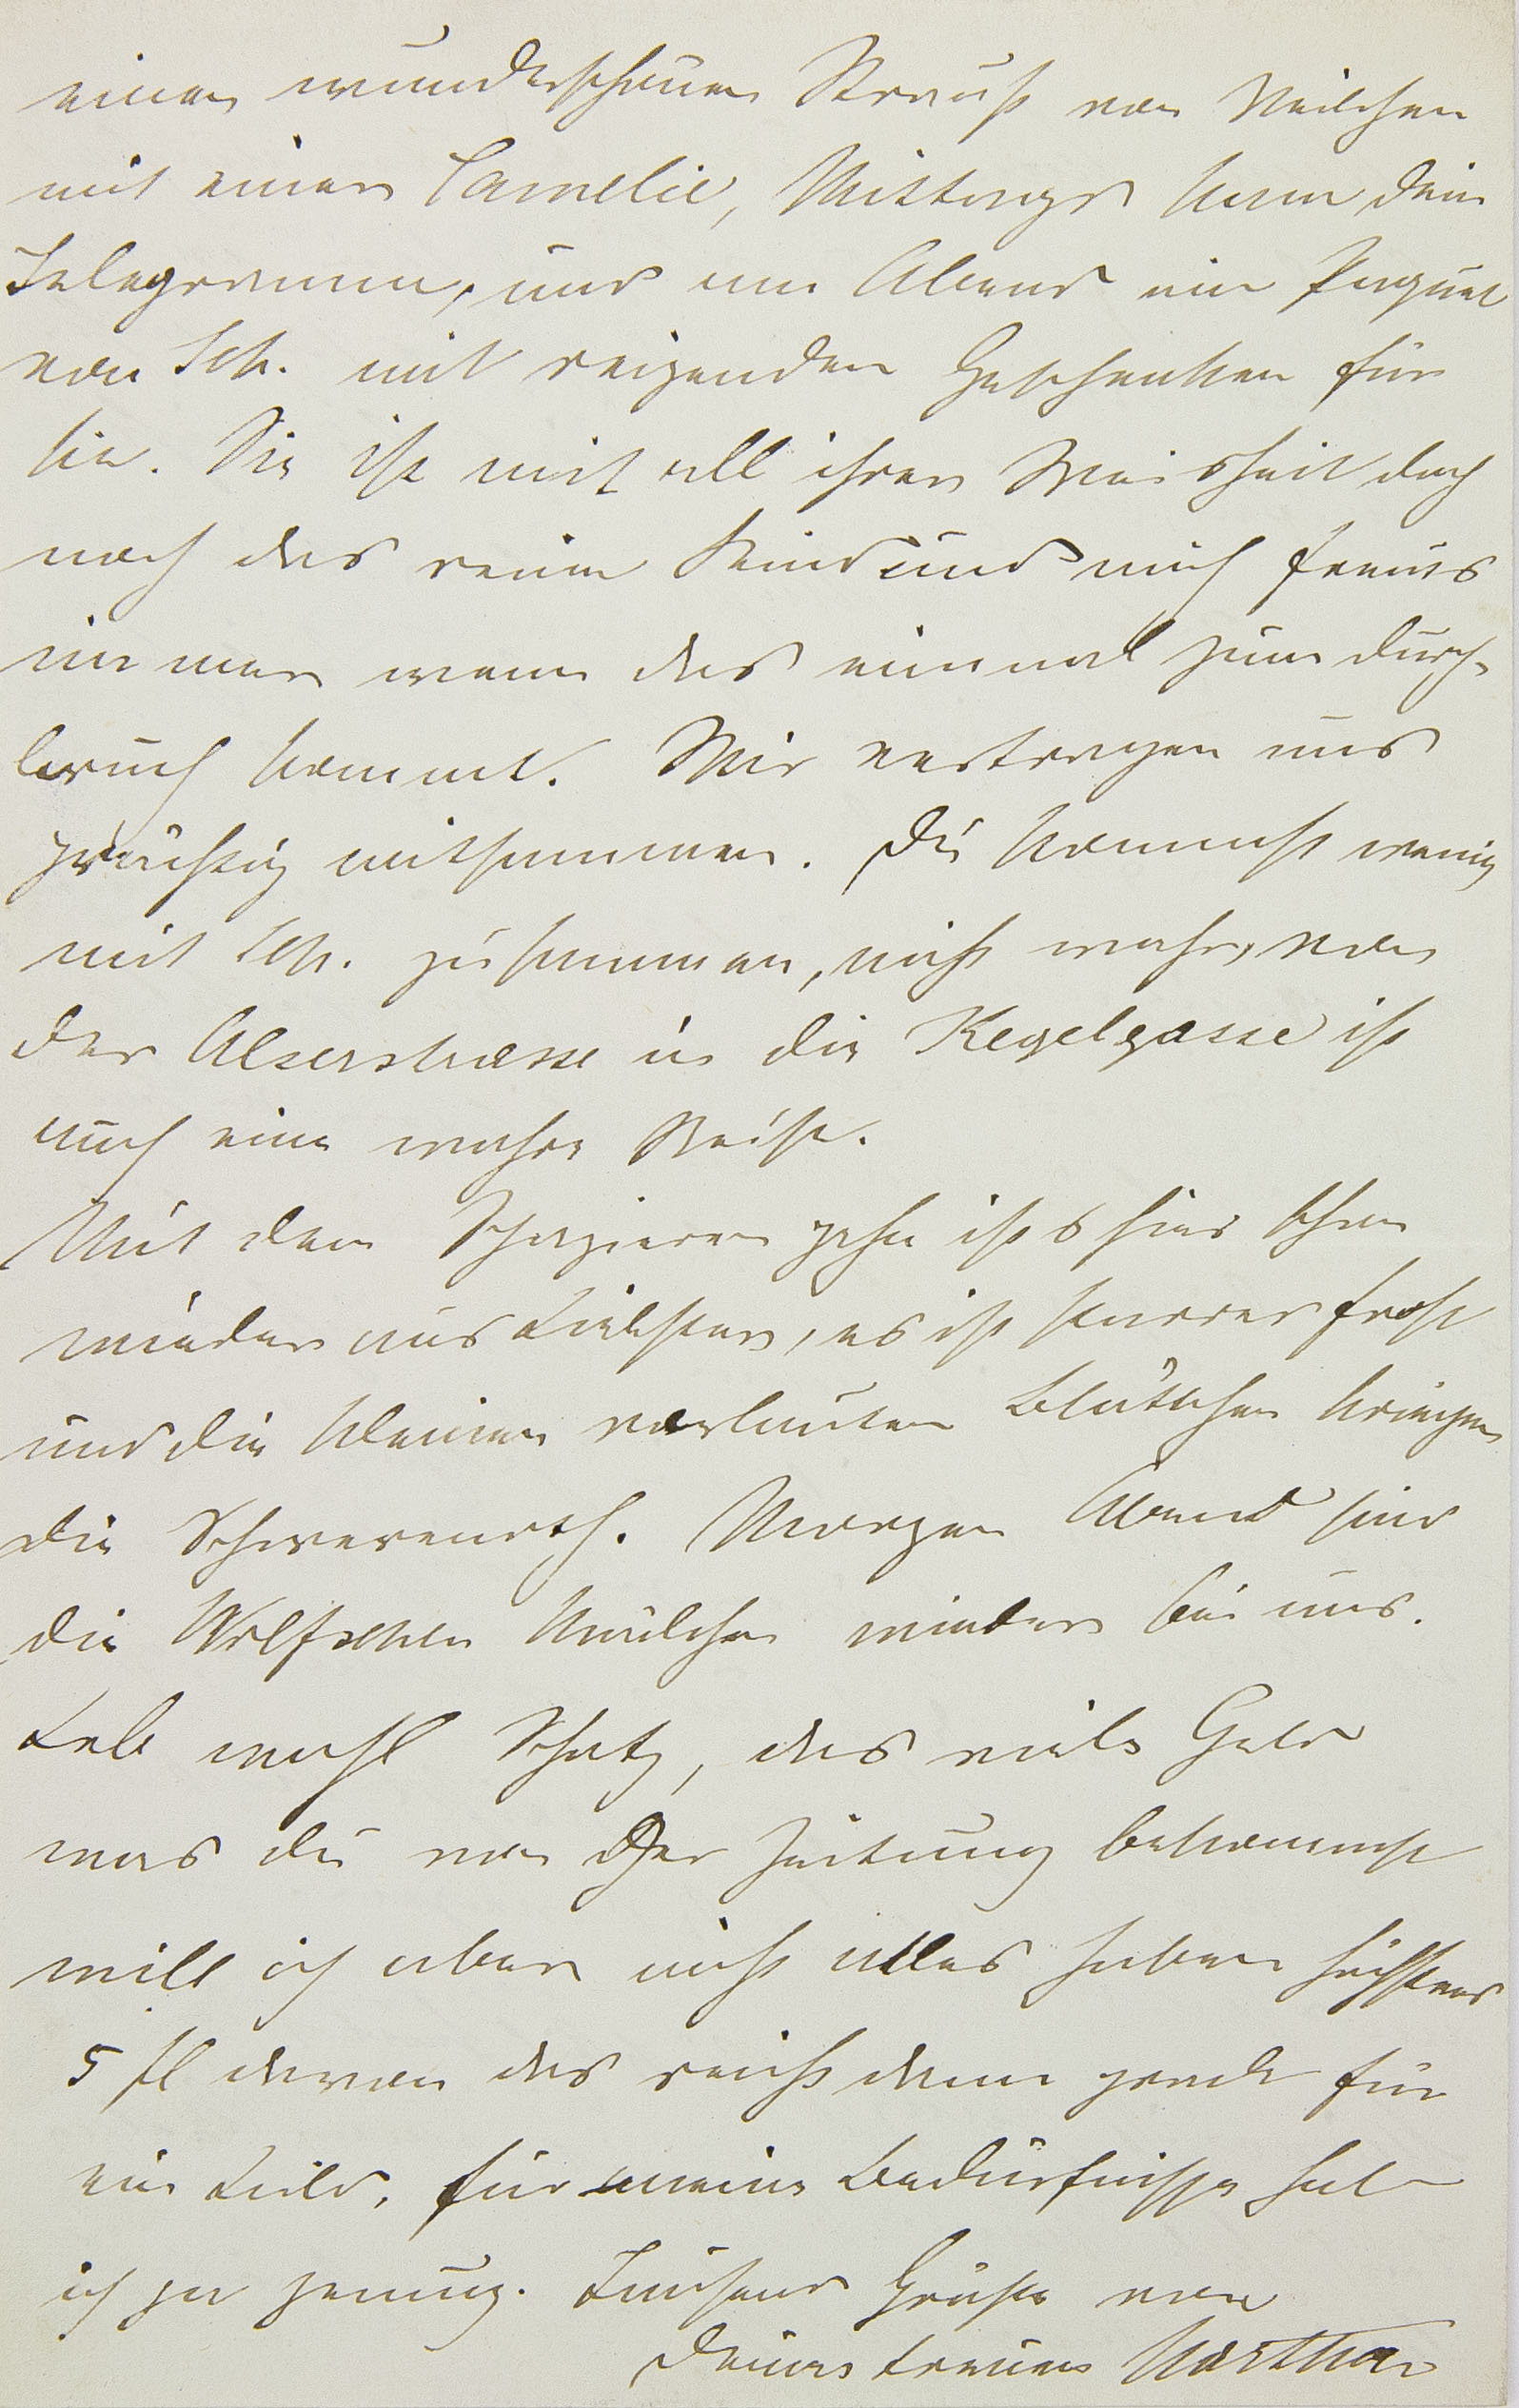 einen wunderschönen Strauß von Veilchen
mit einer Camelie, Mittags kam dein
Telegramm, und am Abend ein Paquet
von Sch. mit reizenden Geschenken für
sie. Sie ist mit all ihrer Weisheit doch
noch das reine Kind und mich freuts
immer wenn das einmal zum Durch-
bruch kommt. Wir vertragen uns
prächtig mitsammen. Du kommst wenig
mit Sch. zusammen, nicht wahr, von
der Alserstrasse in die Kegelgasse ist
auch eine wahre Reise.
Mit dem Spazieren gehn ists hier schon
wieder aus Liebster, es ist starrer Frost
und die kleinen vorlauten Blättchen kriegen
die Schwerenoth. Morgen Abend sind
die Wolfschen Mädchen wieder bei uns.
Leb wohl Schatz, das viele Geld
was du von der Zeitung bekommst
will ich aber nicht alles haben höchstens
5 fl davon das reicht dann grade für
ein Bild, für meine Bedürfnisse hab
ich ja genug. Tausend Grüße von
Deiner treuen Martha